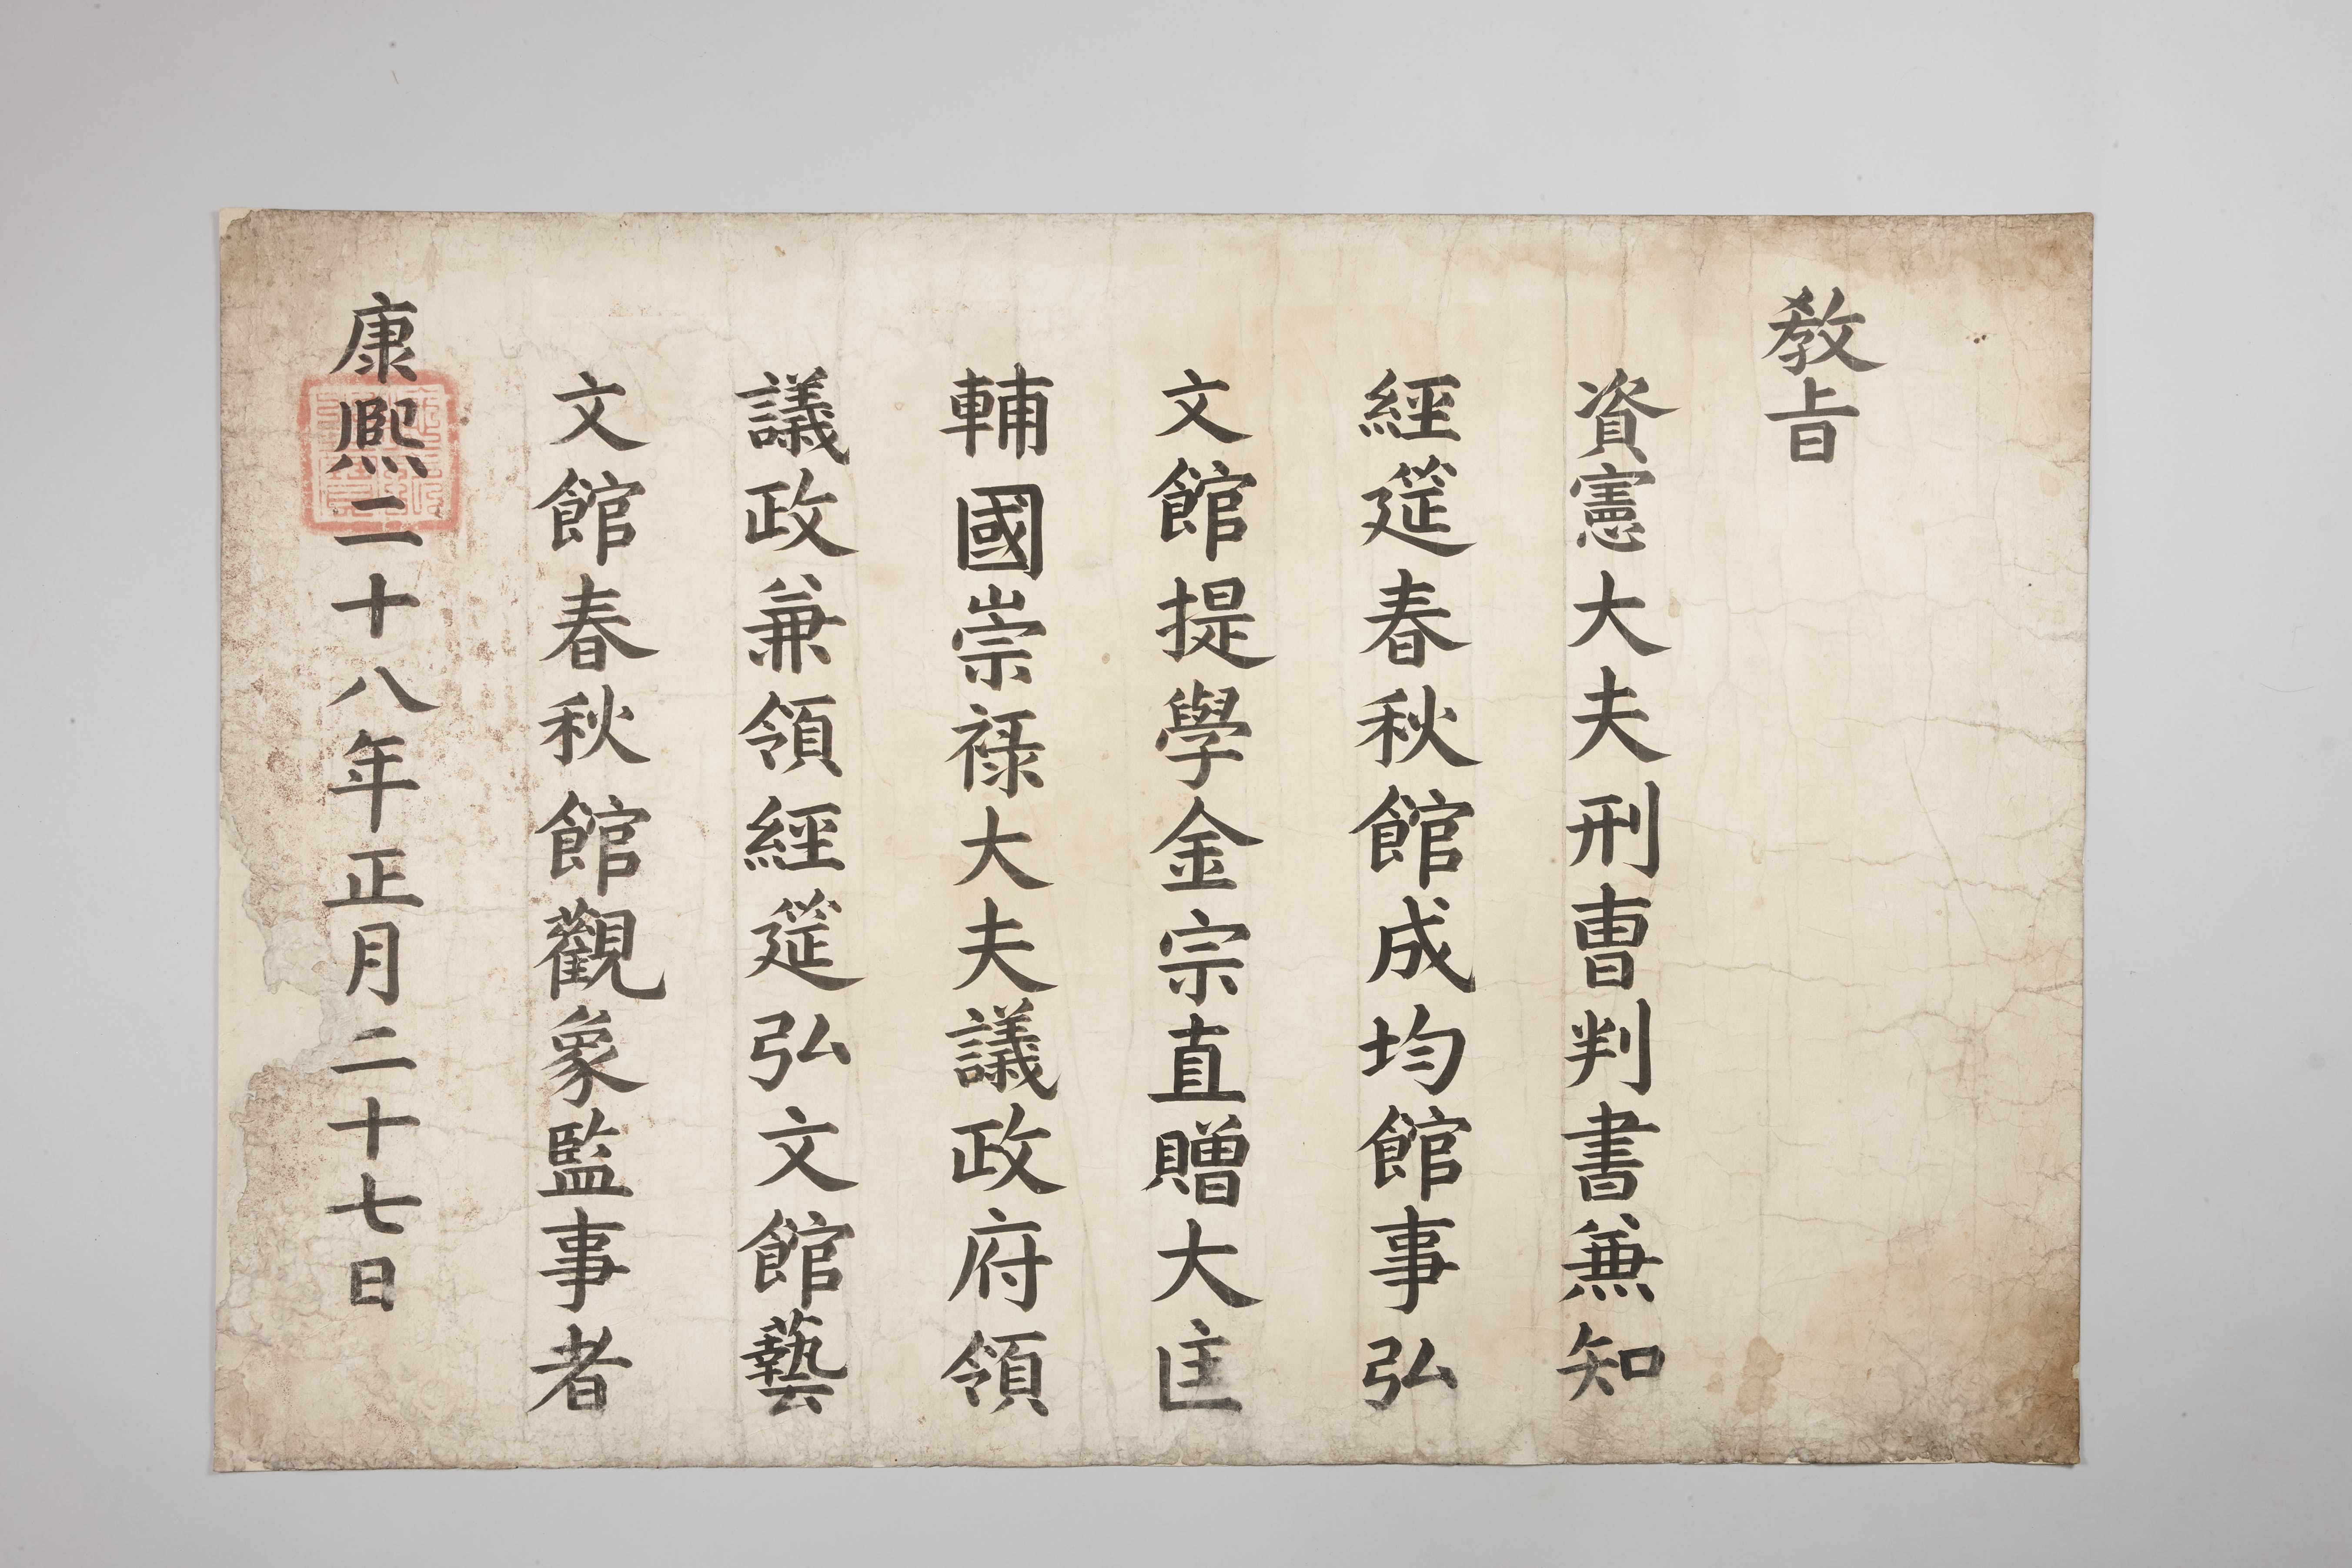 教旨
資憲大夫刑曺判書兼知
經筵春秋館成均館事弘
文館提學金宗直贈大匡
輔國崇祿大夫議政府領
議政兼領經筵弘文館藝
文館春秋館觀象監事者
康熙二十八年正月二十七日